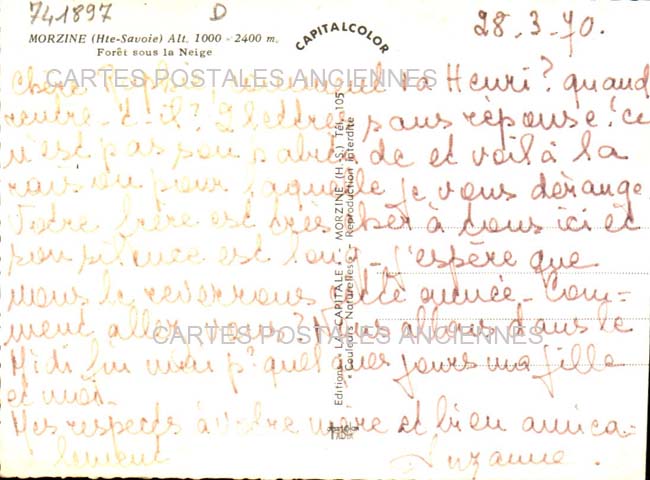 741897 D
MORZINE (Hte-Savoie) Alt. 1000 - 2400 m.
Forêt sous la Neige
CAPITALCOLOR
28-3-70.
CARTES POSTALES ANCIENNES
Chère comment va Henri? quand
rentre-t-il? 2 lettres sans réponse! ce
n'est pas son habitude et voilà la
raison pour laquelle je vous dérange
Votre frère est très cher à nous ici et
son silence est long - j'espère que
nous le reverrons cette année - Com-
ment allez vous? Nous allons dans le
CARTES POSTALES ANCIENNES
Midi fin mai pr quelques jours ma fille
et moi -
Mes respects à votre mère et bien amica-
lement
Suzanne.
Editions "LA CAPITALE" - MORZINE (H.-S.) Tél. 105
"Couleurs Naturelles" Reproduction interdite